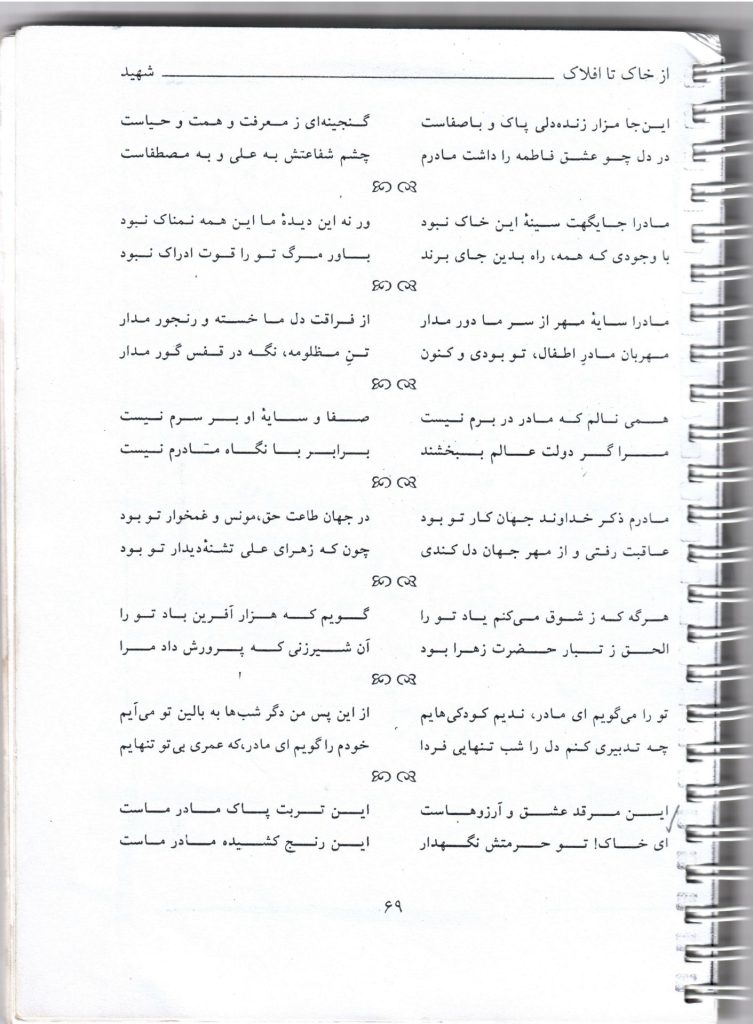 از خاک تا افلاک شهید
این‌جا مزار زنده‌دلی پاک و باصفاست گنجینه‌ای ز معرفت و همت و حیاست
در دل چو عشق فاطمه را داشت مادرم چشم شفاعتش به علی و به مصطفاست
مادرا جایگهت سینهٔ این خاک نبود ور نه این دیدهٔ ما این همه نمناک نبود
با وجودی که همه، راه بدین جای برند باور مرگ تو را قوت ادراک نبود
مادرا سایهٔ مهر از سر ما دور مدار از فراقت دل ما خسته و رنجور مدار
مهربان مادرِ اطفال، تو بودی و کنون تنِ مظلومه، نگه در قفس گور مدار
همی نالم که مادر در برم نیست صفا و سایهٔ او بر سرم نیست
مرا گر دولت عالم ببخشند برابر با نگاه مادرم نیست
مادرم ذکر خداوند جهان کار تو بود در جهان طاعت حق،مونس و غمخوار تو بود
عاقبت رفتی و از مهر جهان دل کندی چون که زهرای علی تشنهٔدیدار تو بود
هرگه که ز شوق می‌کنم یاد تو را گویم که هزار آفرین باد تو را
الحق ز تبار حضرت زهرا بود آن شیرزنی که پرورش داد مرا
تو را می‌گویم ای مادر، ندیم کودکی‌هایم از این پس من دگر شب‌ها به بالین تو می‌آیم
چه تدبیری کنم دل را شب تنهایی فردا خودم را گویم ای مادر،که عمری بی‌تو تنهایم
این مرقد عشق و آرزوهاست این تربت پاک مادر ماست
ای خاک! تو حرمتش نگهدار این رنج کشیده مادر ماست
۶۹